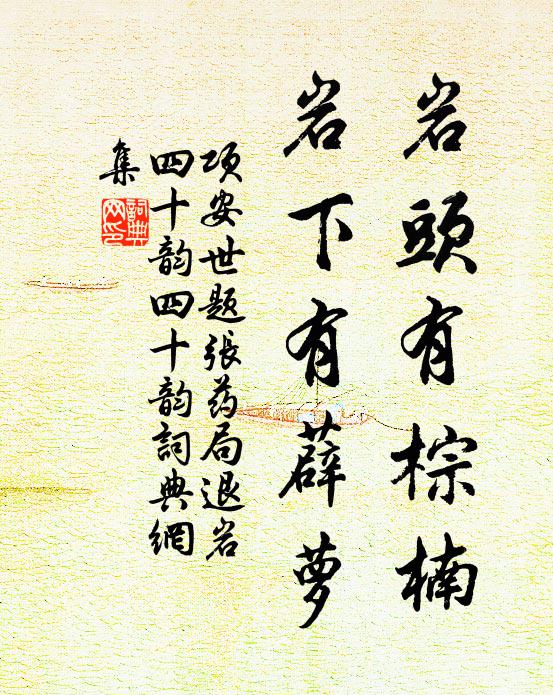 岩頭有棕楠
岩下有薜萝
项安世题張药局退岩
四十韵四十韵詞典網
集
詞典
网印